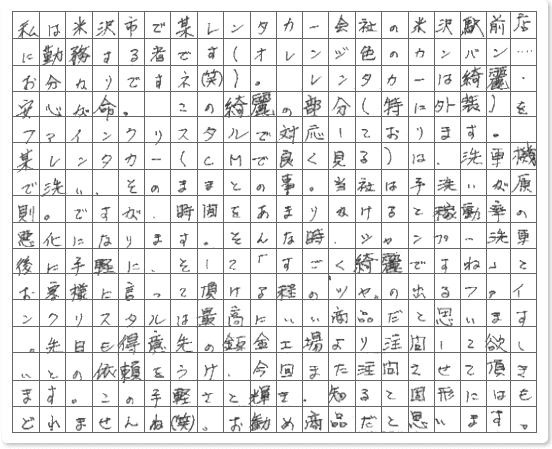 私は米沢市で某レンタカー会社の米沢駅前店
に勤務する者です(オレンジ色のカンバン…
お分かりですネ(笑))。 レンタカーは綺麗・
安心が命。 この綺麗の部分(特に外装)を
ファインクリスタルで対応しております。
某レンタカー(CMで良く見る)は、洗車機
で洗い、そのままとの事。当社は手洗いが原
則。ですが、時間をあまりかけると稼動率の
悪化になります。そんな時、シャンプー洗車
後に手軽に、そして「すごく綺麗ですね」と
お客様に言って頂ける程のツヤ。の出るファイ
ンクリスタルは最高にいい商品だと思います
。先日も得意先の鈑金工場より注問して欲し
いとの依頼をうけ、今回また注問させて頂き
ます。この手軽さと輝き、知ると固形にはも
どれませんね(笑)。お勧め商品だと思います。